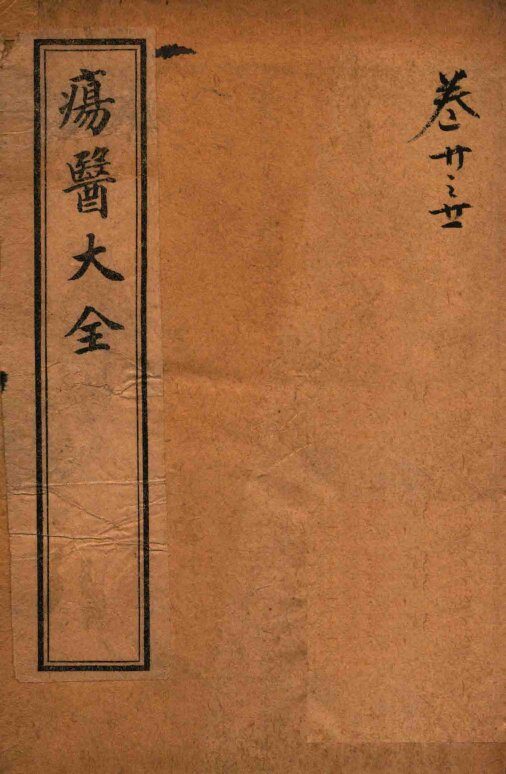 卷廿之廿一
瘍醫大全